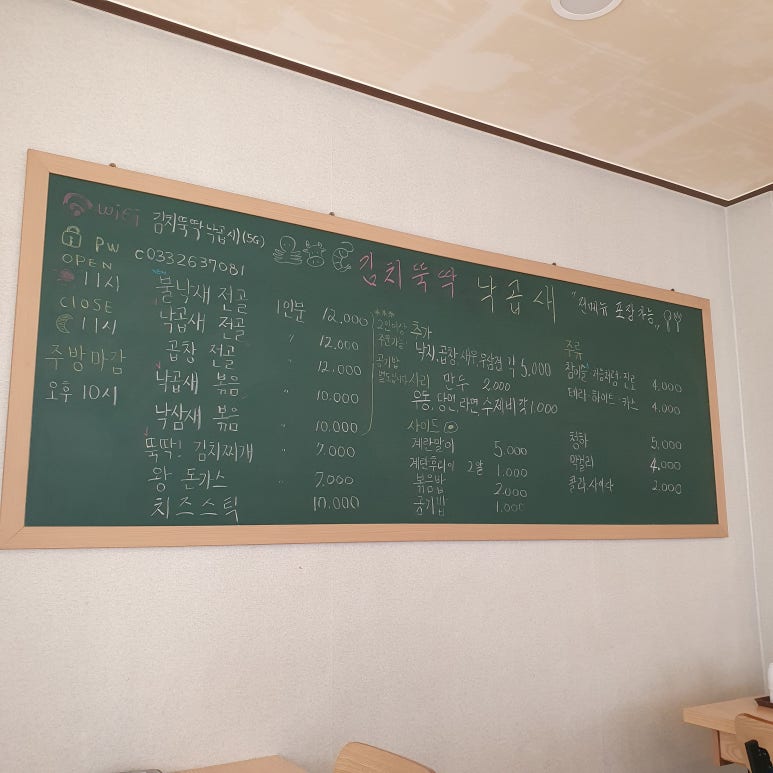 WiFi 김치뚝딱낙곱새(5G)
PW c0332637081
OPEN
11시
CLOSE
11시
주방마감
오후 10시
김치뚝딱 낙곱새
"전메뉴 포장가능"
NEW
불낙새 전골 1인분 12,000
낙곱새 전골 〃 12,000
곱창 전골 〃 12,000
낙곱새 볶음 〃 10,000
낙삼새 볶음 〃 10,000
뚝딱! 김치찌개 〃 7,000
왕 돈가스 〃 7,000
치즈스틱 10,000
2인이상
주문가능
공기밥
별도입니다
추가
낙지,곱창,새우,우삼겹 각 5,000
사리 만두 2,000
우동,당면,라면,수제비 각 1,000
사이드
계란말이 5,000
계란후라이 2알 1,000
볶음밥 2,000
공기밥 1,000
주류
참이슬·처음처럼·진로 4,000
테라·하이트·카스 4,000
청하 5,000
막걸리 4,000
콜라·사이다 2,000